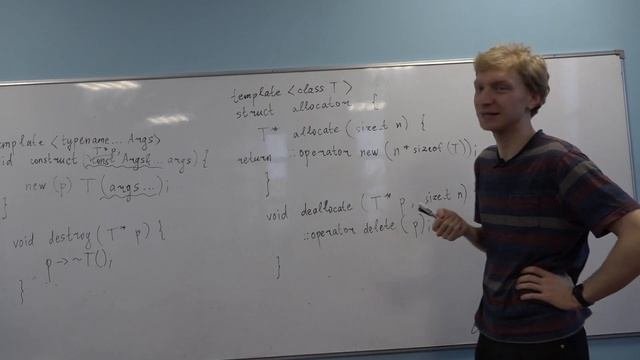 template <class T>
struct allocator {
T* allocate (size_t n) {
return ::operator new (n * sizeof(T));
}
void deallocate (T* p, size_t n)
::operator delete (p);
}
emplate <typename... Args>
id construct (T* p, const Args&... args) {
new (p) T (args...);
}
void destroy (T* p) {
p -> ~T();
}